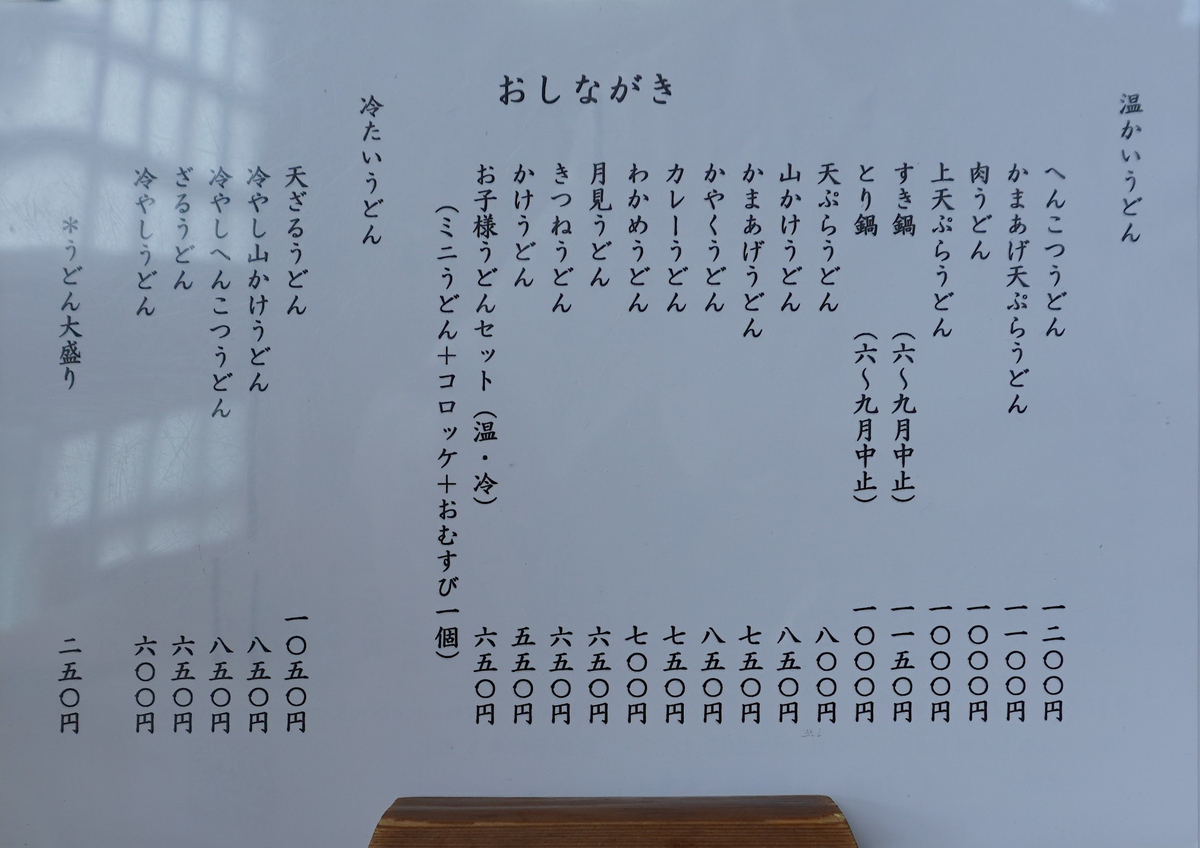 おしながき
温かいうどん
へんこつうどん 一二〇〇円
かまあげ天ぷらうどん 一一〇〇円
肉うどん 一〇〇〇円
上天ぷらうどん 一〇〇〇円
すき鍋 (六〜九月中止) 一一五〇円
とり鍋 (六〜九月中止) 一〇〇〇円
天ぷらうどん 八〇〇円
山かけうどん 八五〇円
かまあげうどん 七五〇円
かやくうどん 八五〇円
カレーうどん 七五〇円
わかめうどん 七〇〇円
月見うどん 六五〇円
きつねうどん 六五〇円
かけうどん 五五〇円
お子様うどんセット(温・冷) 六五〇円
(ミニうどん+コロッケ+おむすび一個)
冷たいうどん
天ざるうどん 一〇五〇円
冷やし山かけうどん 八五〇円
冷やしへんこつうどん 八五〇円
ざるうどん 六五〇円
冷やしうどん 六〇〇円
*うどん大盛り 二五〇円